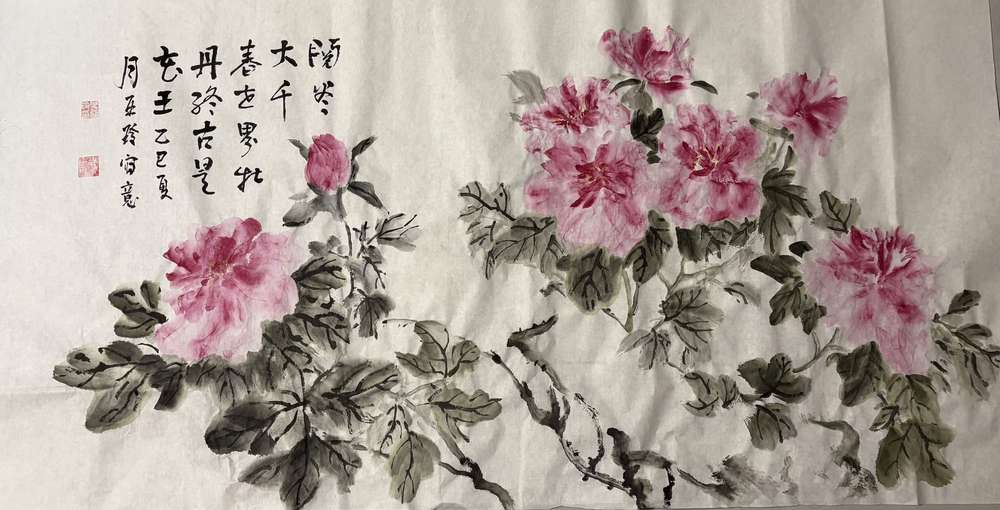 閱尽
大千
春世界牡
丹終古是
花王 乙巳夏
月亚 写意